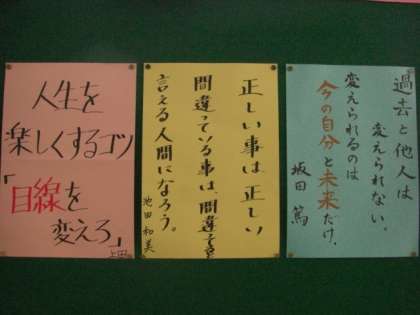 人生を
楽しくするコツ
「目線を
変えろ」
正しい事は正しい
間違っている事は、間違
言える人間になろう。
池田和美
過去と他人は
変えられない。
変えられるのは
今の自分と未来だけ。
坂田 篤